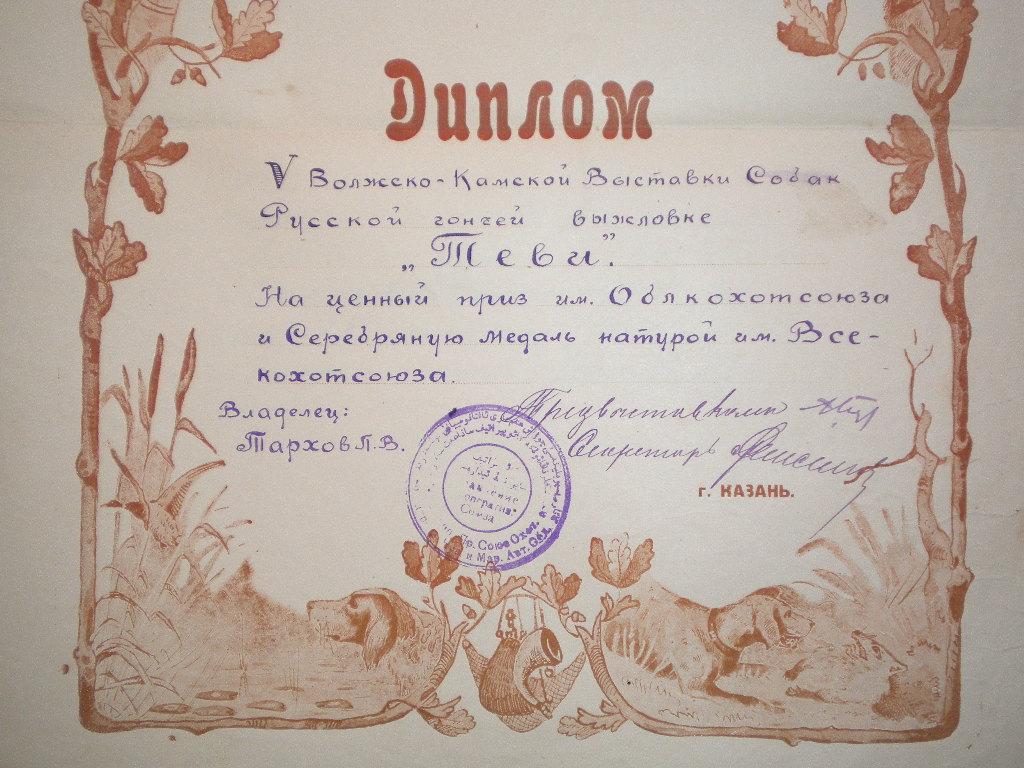 Диплом
V Волжско-Камской Выставки Собак
Русской гончей выжловке
„Теви".
На ценный приз им. Облкохотсоюза
и Серебряную медаль натурой им. Все-
кохотсоюза.
Владелец:
Тархов П. В.
Секретарь
Союза
Союз Охот.
и Мар. Авт. Обл.
г. КАЗАНЬ.